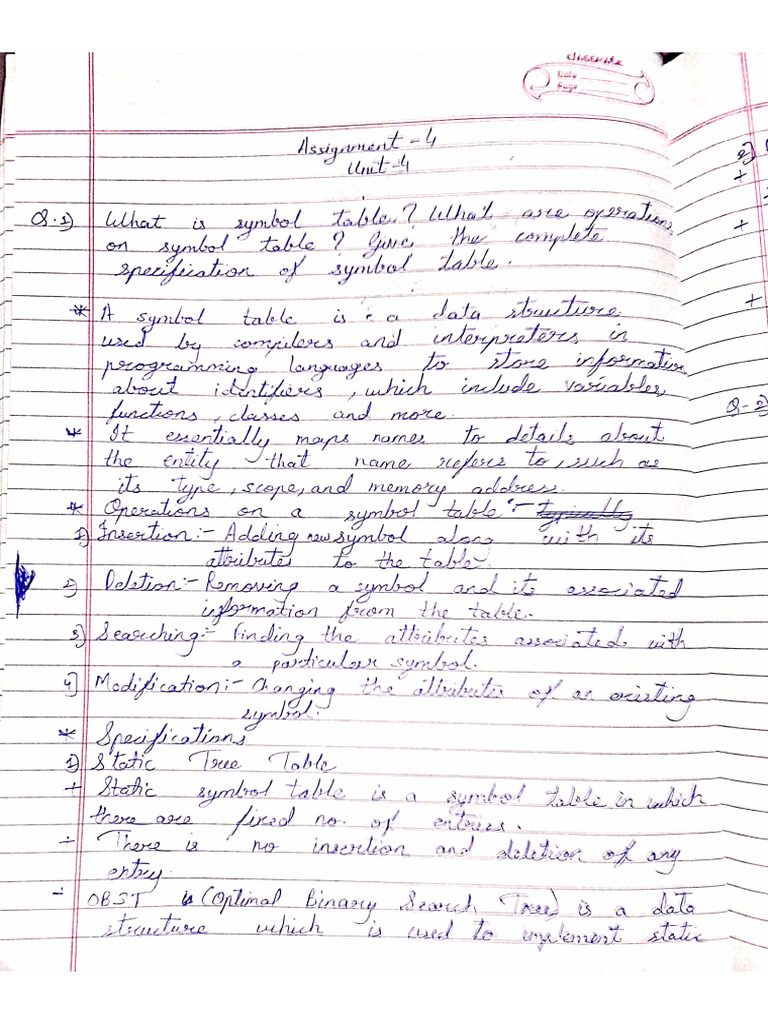 classmate
Date
Page
Assignment - 4
Unit - 4
Q.1) What is symbol table? What are operations
on symbol table? Give the complete
specification of symbol table.
* A symbol table is a data structure
used by compilers and interpreters in
programming languages to store information
about identifiers, which include variables,
functions, classes and more.
* It essentially maps names to details about
the entity that name refers to, such as
its type, scope, and memory address.
* Operations on a symbol table :- typically
1) Insertion:- Adding new symbol along with its
attributes to the table.
2) Deletion:- Removing a symbol and its associated
information from the table.
3) Searching:- Finding the attributes associated with
a particular symbol.
4) Modification:- Changing the attributes of an existing
symbol.
* Specifications
1) Static Tree Table
+ Static symbol table is a symbol table in which
there are fixed no. of entries.
+ There is no insertion and deletion of any
entry.
- OBST is (Optimal Binary Search Tree) is a data
structure which is used to implement static
2)
+
+
+
Q-2)